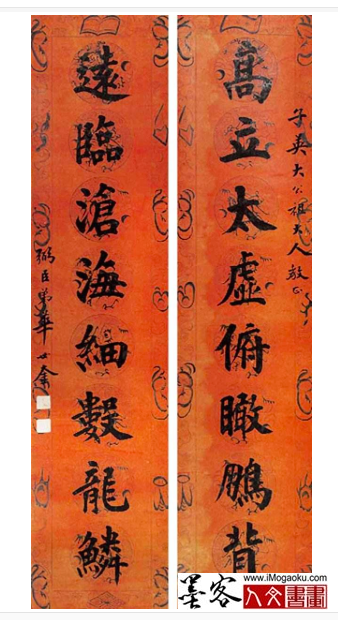 子英大公祖大人教正
高立太虛俯瞰鵬背
遠臨滄海細數龍鱗
弼臣弟華世奎
墨客
www.iMogaoku.com
人文書畫